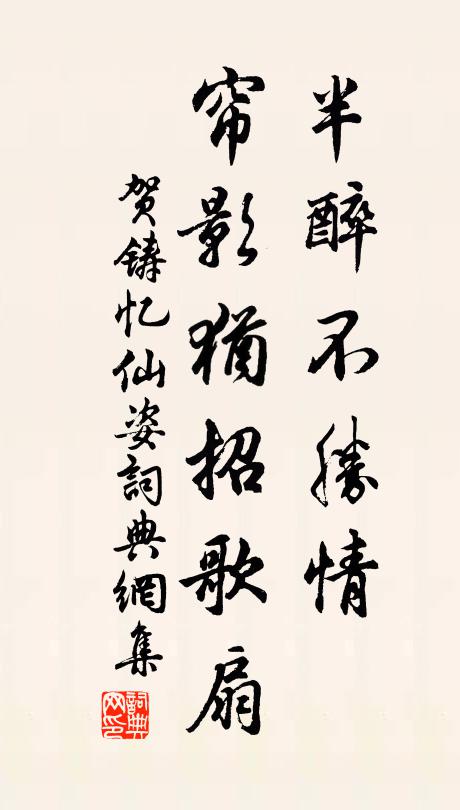 半醉不勝情
帘影猶招歌扇
贺鑄忆仙姿詞典網集
詞典网印